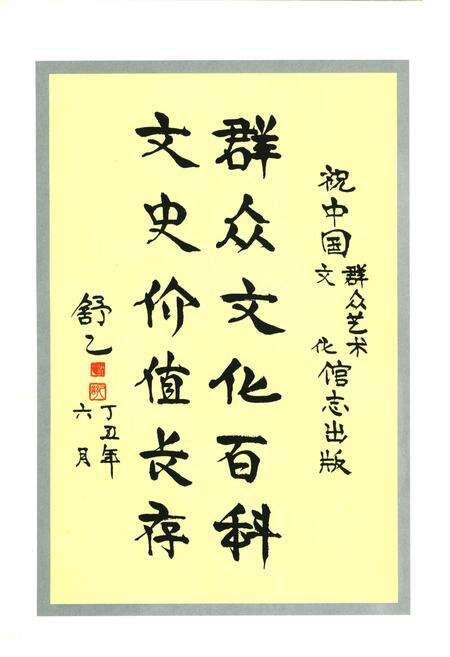 祝中国群众艺术文化馆志出版
群众文化百科
文史价值长存
舒乙
丁丑年
六月